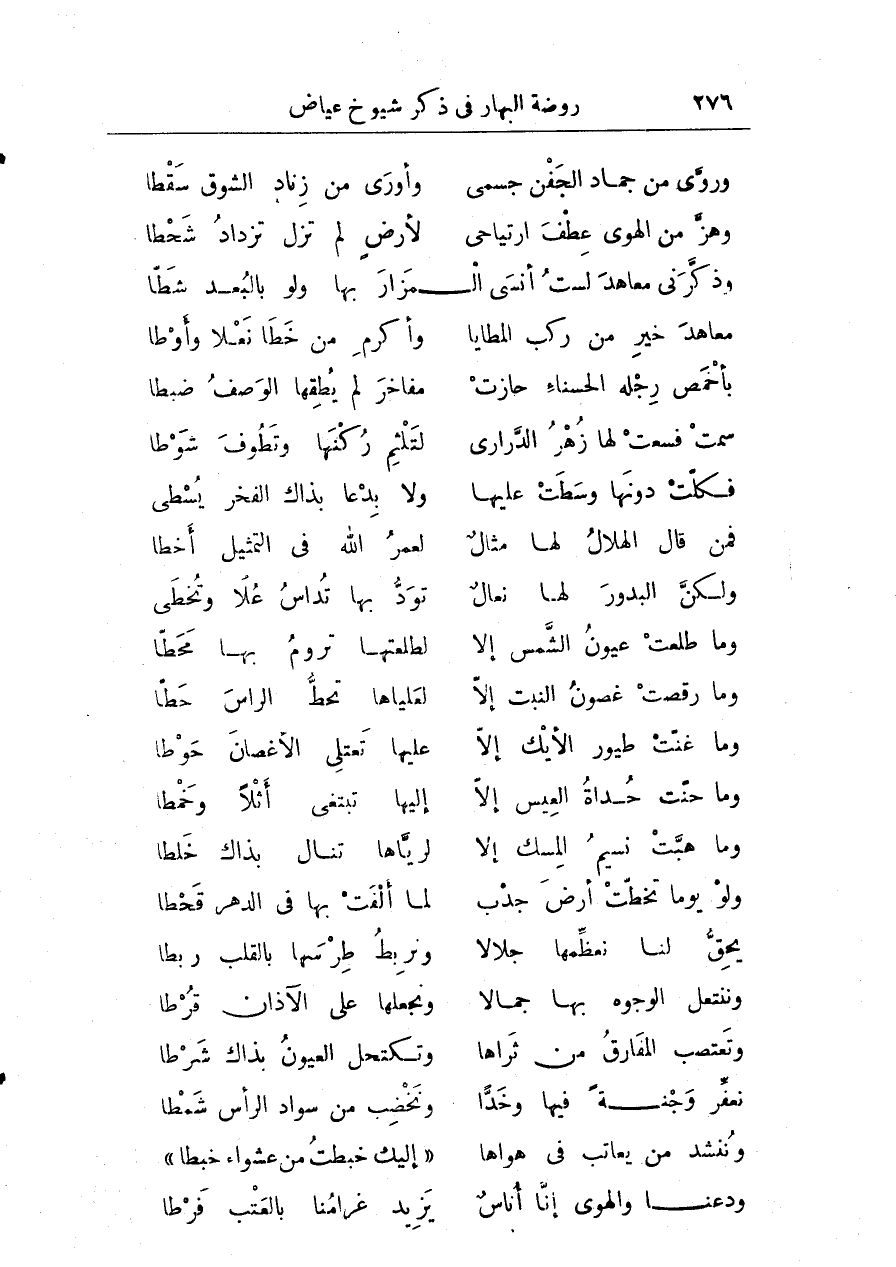 ٢٧٦ روضة البهار فى ذكر شيوخ عياض
وروَّى من جماد الجَفْن جسمى وأورَى من زِنادِ الشوق سَقْطا
وهزَّ من الهوى عِطْفَ ارتياحى لأرضٍ لم تزل تزدادُ شَحْطا
وذكَّرَنى معاهدَ لستُ أنسَى الْـمَزارَ بها ولو بالبُعد شطَّا
معاهدَ خيرِ من ركب المطايا وأكرمِ من خَطَا نَعْلا وأَوْطا
بأخْمَص رِجْله الحسناءِ حازتْ مفاخرَ لم يُطِقها الوَصفُ ضبطا
سمتْ فسعتْ لها زُهْرُ الدَّرارى لتَلْثِم رُكْنَها وتَطُوفَ شَوْطا
فكلّتْ دونَها وسَطَتْ عليها ولا بِدْعا بذاك الفخر يُسْطى
فمن قال الهلالُ لها مثالٌ لعمرُ الله فى التمثيل أَخطا
ولكنَّ البدورَ لها نعالٌ تودَّ بها تُداسُ عُلَا وتُخطَى
وما طلعتْ عيونُ الشَّمس إلا لطلعتها ترومُ بها مَحَطّا
وما رقصتْ غصونُ النبت إلاّ لعَلياها تحطُّ الراسَ حَطّا
وما غنّتْ طيور الأيْك إلاّ عليها تَعتلِى الأغصانَ حَوْطا
وما حنّت حُداةُ العِيس إلاّ إليها تبتغى أَثْلاً وخَمْطا
وما هبَّتْ نسيمُ المِسك إلا لريَّاها تنال بذاك خَلطا
ولوْ يوما تخطّتْ أرضَ جدْب لما أَلْفَتْ بها فى الدهر قَحْطا
يحِقُّ لنا نعظِّمها جلالا ونربِطُ طِرْسَها بالقلب ربطا
وننتعل الوجوه بها جمالا ونجعلها على الآذان قُرْطا
وتَعتصب المَفارقُ من ثَراها وتكتحل العيونُ بذاك شَرْطا
نعفِّر وَجْنةً فيها وخَدًّا ونَخْضِب من سواد الرأس شَمْطا
ونُنشد من يعاتب فى هواها «إليك خبطتُ من عشواء خبطا»
ودعنا والهوى إنَّا أُناسٌ يَزِيد غرامُنا بالعَتْب فَرْطا